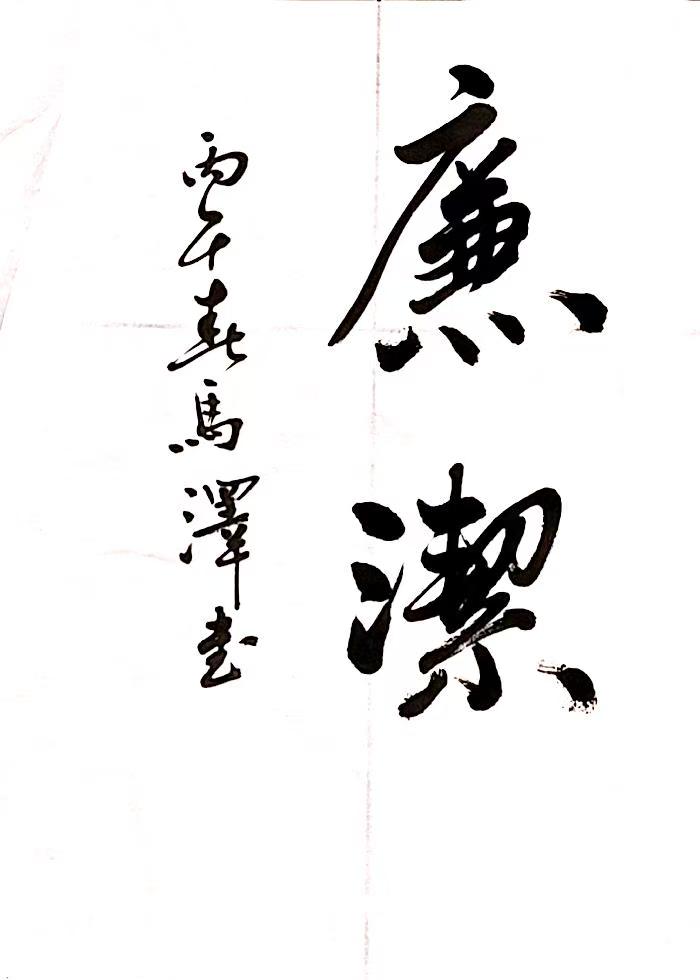 廉潔
丙午春馬澤書